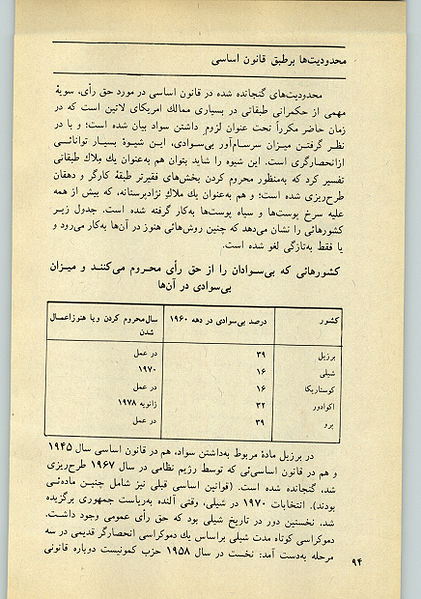 محدودیت‌ها برطبق قانون اساسی
محدودیت‌های گنجانده شده در قانون اساسی در مورد حق رأی، سویهٔ
مهمی از حکمرانی طبقاتی در بسیاری ممالک امریکای لاتین است که در
زمان حاضر مکرراً تحت عنوان لزوم داشتن سواد بیان شده است؛ و با در
نظر گرفتن میزان سرسام‌آور بی‌سوادی، این شیوهٔ بسیار توانائی
ازانحصارگری است. این شیوه را شاید بتوان هم به‌عنوان یك مِلاك طبقاتی
تفسیر کرد که به‌منظور محروم کردن بخش‌های فقیرتر طبقهٔ کارگر و دهقان
طرح‌ریزی شده است؛ و هم به‌عنوان یك ملاكِ نژادپرستانه، که بیش از همه
علیه سرخ پوست‌ها و سیاه پوست‌ها به‌کار گرفته شده است. جدول زیر
کشورهائی را نشان می‌دهد که چنین روش‌هائی هنوز در آن‌ها به‌کار می‌رود و
یا فقط به‌تازگی لغو شده است.
کشورهائی که بی‌سوادان را از حق رأی محروم می‌کنند و میزان
بی‌سوادی در آن‌ها
کشور درصد بی‌سوادی در دهه ۱۹۶۰ سال‌محروم کردن ویا هنوزاعمال
شدن
برزیل ۳۹ در عمل
شیلی ۱۶ ۱۹۷۰
کوستاریکا ۱۶ در عمل
اکوادور ۳۲ ژانویه ۱۹۷۸
پرو ۳۹ در عمل
در برزیل مادهٔ مربوط به‌داشتن سواد، هم در قانون اساسی سال ۱۹۴۵
و هم در قانون اساسی‌ئی که توسط رژیم نظامی در سال ۱۹۶۷ طرح‌ریزی
شد، گنجانده شده است. (قوانین اساسی قبلی نیز شامل چنین ماده‌ئی
بودند). انتخابات ۱۹۷۰ در شیلی، وقتی آلنده به‌ریاست جمهوری برگزیده
شد، نخستین دور در تاریخ شیلی بود که حق رأی عمومی وجود داشت.
دموکراسی کوتاه مدت شیلی براساس یك دموکراسی انحصارگر قدیمی در سه
مرحله به‌دست آمد: نخست در سال ۱۹۵۸ حزب کمونیست دوباره قانونی
۹۴